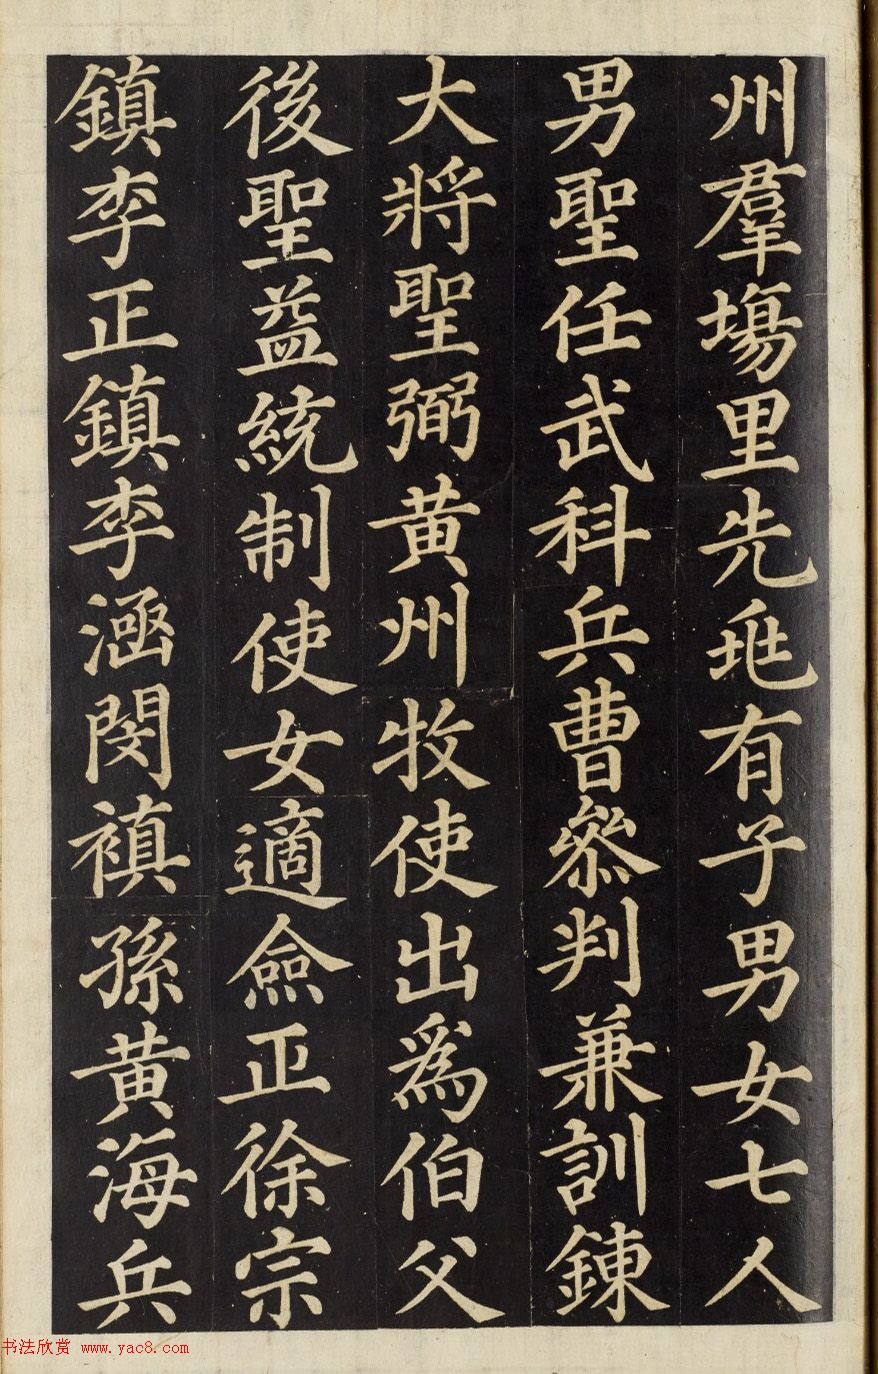 州羣塲里先兆有子男女七人
男聖任武科兵曹叅判兼訓鍊
大將聖弼黄州牧使出爲伯父
後聖益統制使女適僉正徐宗
鎮李正鎮李涵閔禛孫黄海兵
书法欣赏 www.yac8.com